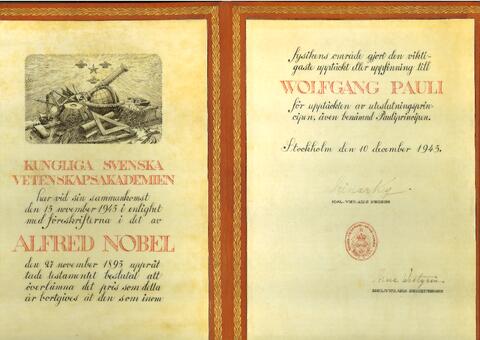 KUNGLIGA SVENSKA
VETENSKAPSAKADEMIEN
har vid sin sammankomst
den 15 november 1945 i enlighet
med föreskrifterna i det av
ALFRED NOBEL
den 27 november 1895 upprät
tade testamentet beslutat att
överlämna det pris som detta
år bortgives åt den som inom
fysikens område gjort den vikti-
gaste upptäckt eller uppfinning till
WOLFGANG PAULI
för upptäckten av uteslutningsprin-
cipen, även benämnd Pauliprincipen.
Stockholm den 10 december 1945.